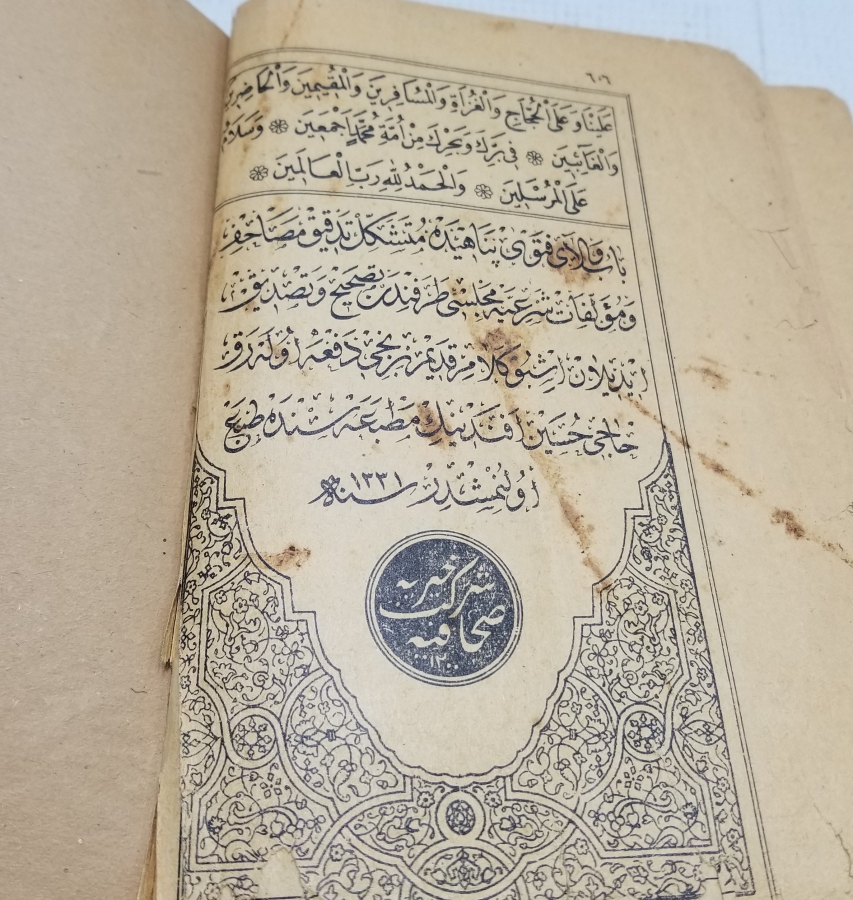 ٦٠٦
عَلَيْنَا وَعَلَى الْحُجَّاجِ وَالْغُزَاةِ وَالْمُسَافِرِينَ وَالْمُقِيمِينَ وَالْحَاضِرِينَ
وَالْغَآئِبِينَ ❁ فِى بَرِّكَ وَبَحْرِكَ مِنْ اُمَّةِ مُحَمَّدٍ اَجْمَعِينَ ❁ وَسَلَامٌ
عَلَى الْمُرْسَلِينَ ❁ وَالْحَمْدُ لِلّٰهِ رَبِّ الْعَالَمِينَ ❁
باب والاى فتوى پناهيده متشكل تدقيق مصاحف
ومؤلفات شرعيه مجلسى طرفندن تصحيح وتصديق
ايديلان اشبو كلام قديم برنجى دفعه اوله رق
حاجى حسين افندينك مطبعه سنده طبع
اولنمشدر سنه ١٣٣١
شركت خيريه
صحافيه